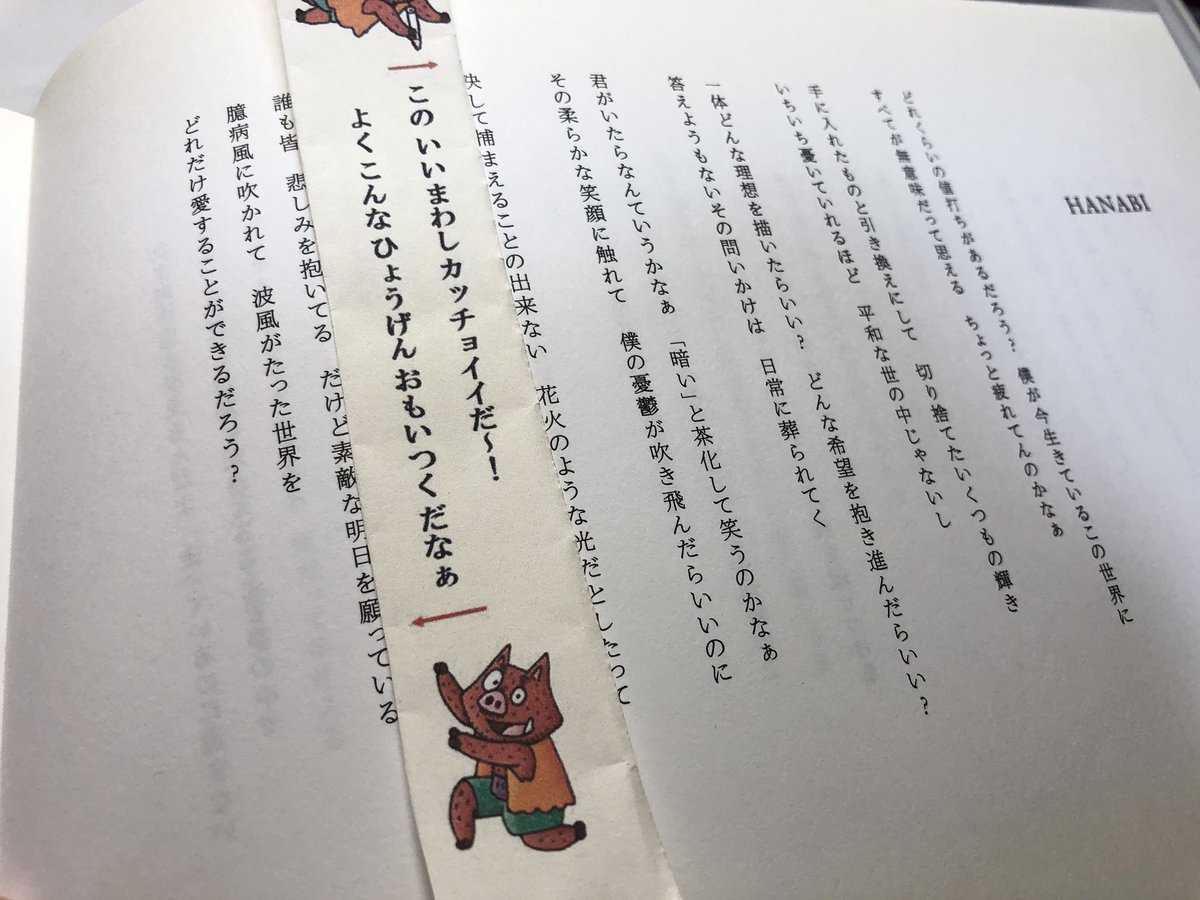 HANABI
どれくらいの値打ちがあるだろう? 僕が今生きているこの世界に
すべてが無意味だって思える ちょっと疲れてんのかなぁ
手に入れたものと引き換えにして 切り捨てたいくつもの輝き
いちいち憂いていれるほど 平和な世の中じゃないし
一体どんな理想を描いたらいい? どんな希望を抱き進んだらいい?
答えようもないその問いかけは 日常に葬られてく
君がいたらなんていうかなぁ 「暗い」と茶化して笑うのかなぁ
その柔らかな笑顔に触れて 僕の憂鬱が吹き飛んだらいいのに
決して捕まえることの出来ない 花火のような光だとしたって
このいいまわしカッチョイイだ〜!
よくこんなひょうげんおもいつくだなぁ
誰も皆 悲しみを抱いてる だけど素敵な明日を願っている
臆病風に吹かれて 波風がたった世界を
どれだけ愛することができるだろう?